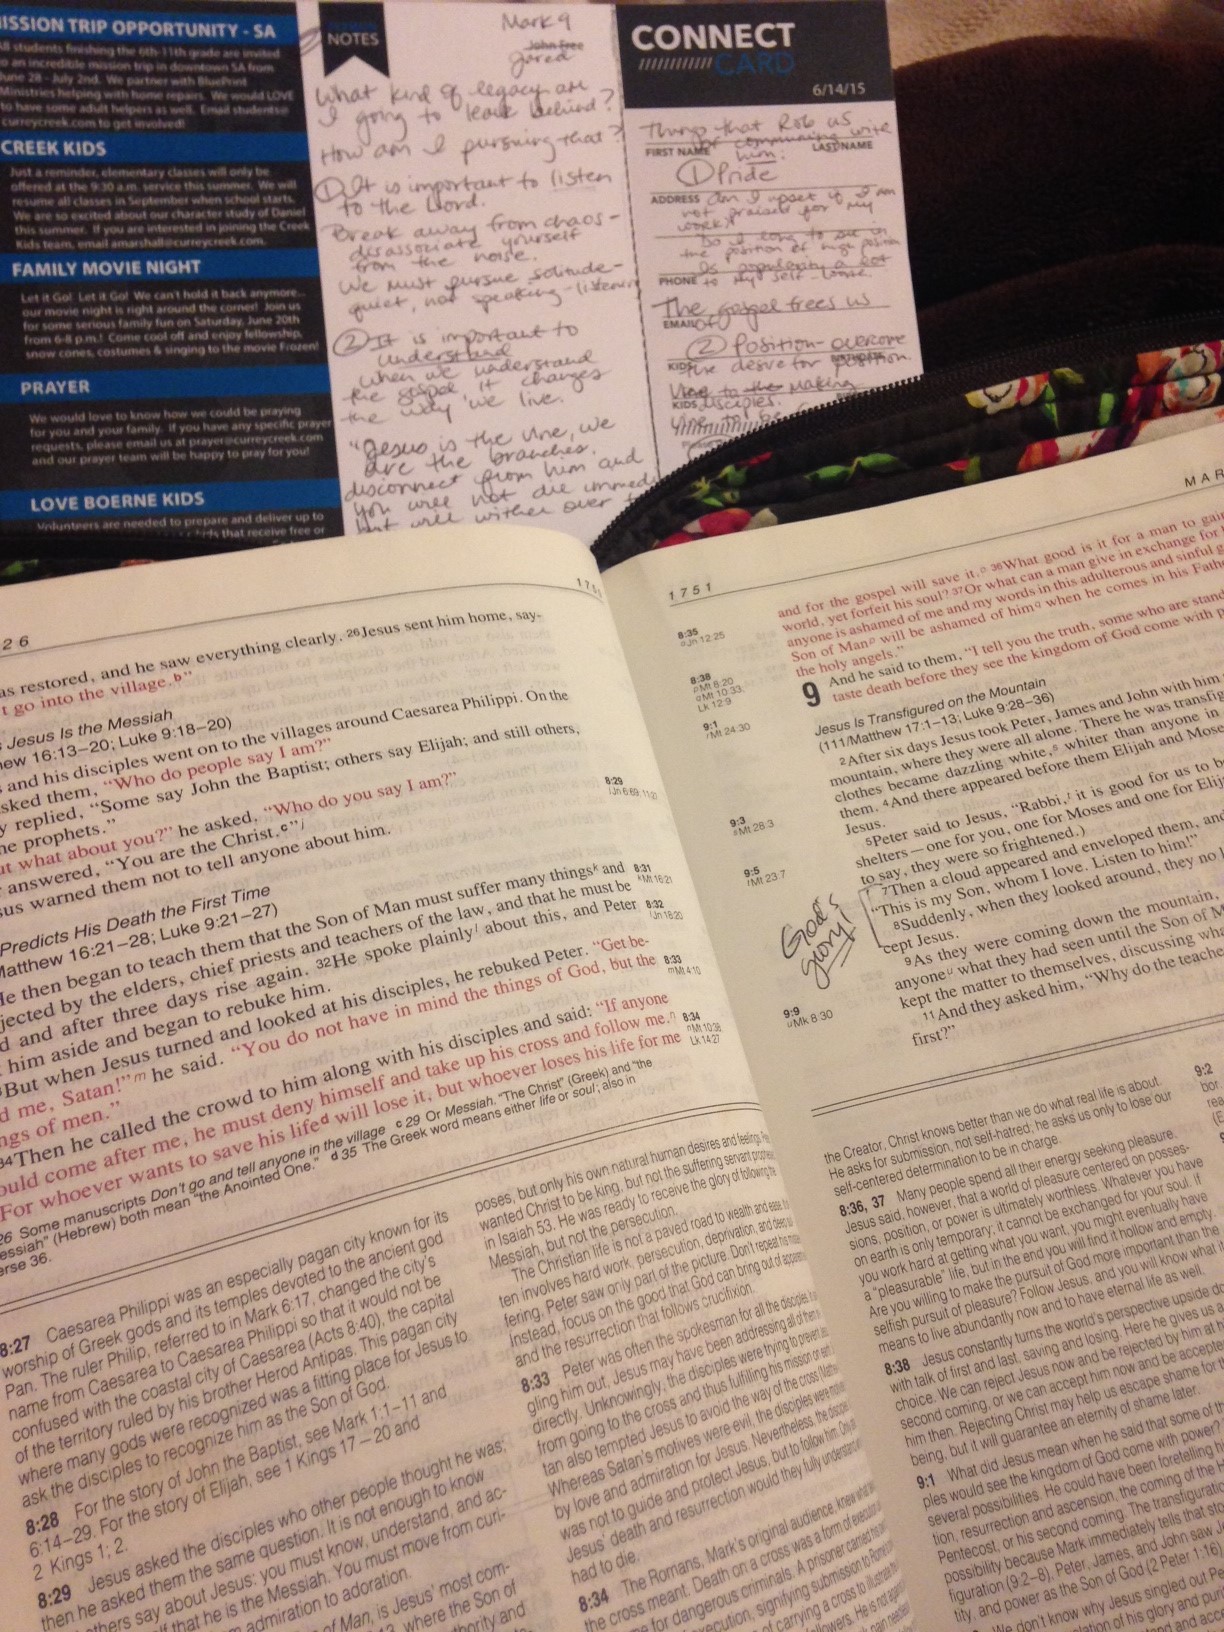 MISSION TRIP OPPORTUNITY - SA
All students finishing the 6th-11th grade are invited
to an incredible mission trip in downtown SA from
June 28 - July 2nd. We partner with BluePrint
Ministries helping with home repairs. We would LOVE
to have some adult helpers as well. Email students@
curreycreek.com to get involved!
CREEK KIDS
Just a reminder, elementary classes will only be
offered at the 9:30 a.m. service this summer. We will
resume all classes in September when school starts.
We are so excited about our character study of Daniel
this summer. If you are interested in joining the Creek
Kids team, email amarshall@curreycreek.com.
FAMILY MOVIE NIGHT
Let it Go! Let it Go! We can't hold it back anymore...
our movie night is right around the corner! Join us
for some serious family fun on Saturday, June 20th
from 6-8 p.m.! Come cool off and enjoy fellowship,
snow cones, costumes & singing to the movie Frozen!
PRAYER
We would love to know how we could be praying
for you and your family. If you have any specific prayer
requests, please email us at prayer@curreycreek.com
and our prayer team will be happy to pray for you!
LOVE BOERNE KIDS
Volunteers are needed to prepare and deliver up to
kids that receive free or
NOTES
Mark 9
John Free
Jared
What kind of legacy am
I going to leave behind?
How am I pursuing that?
① It is important to listen
to the Lord.
Break away from chaos -
disassociate yourself
from the noise.
We must pursue solitude -
quiet, not speaking - listening
② It is important to
understand
When we understand
the gospel it changes
the way we live.
"Jesus is the vine, we
are the branches.
disconnect from him and
you will not die immed
but will wither over
CONNECT
CARD
6/14/15
Things that Rob us
of communing with
him:
FIRST NAME LAST NAME
① Pride
ADDRESS Am I upset if I am
not praised for my
work?
Do I long to be in
the position of high position
Is popularity a lot
PHONE to my self-worth.
The gospel frees us
EMAIL
② Position - overcome
KIDS the desire for position.
BIRTHDATE
making
KIDS disciples.
26
1750
was restored, and he saw everything clearly. 26Jesus sent him home, say-
t go into the village.b"
Jesus Is the Messiah
hew 16:13–20; Luke 9:18–20)
s and his disciples went on to the villages around Caesarea Philippi. On the
asked them, "Who do people say I am?"
y replied, "Some say John the Baptist; others say Elijah; and still others,
ne prophets."
ut what about you?" he asked. "Who do you say I am?"
answered, "You are the Christ.c"i
sus warned them not to tell anyone about him.
Predicts His Death the First Time
Matthew 16:21–28; Luke 9:21–27)
He then began to teach them that the Son of Man must suffer many thingsk and
jected by the elders, chief priests and teachers of the law, and that he must be
d and after three days rise again. 32He spoke plainlyl about this, and Peter
him aside and began to rebuke him.
But when Jesus turned and looked at his disciples, he rebuked Peter. "Get be-
d me, Satan!"m he said. "You do not have in mind the things of God, but the
ngs of men."
34Then he called the crowd to him along with his disciples and said: "If anyone
ould come after me, he must deny himself and take up his cross and follow me.n
For whoever wants to save his lifed will lose it, but whoever loses his life for me
8:29
Jn 6:69; 11:27
8:31
kMt 16:21
8:32
lJn 18:20
8:33
mMt 4:10
8:34
nMt 10:38
Lk 14:27
26 Some manuscripts Don't go and tell anyone in the village c 29 Or Messiah. "The Christ" (Greek) and "the
essiah" (Hebrew) both mean "the Anointed One." d 35 The Greek word means either life or soul; also in
erse 36.
8:27 Caesarea Philippi was an especially pagan city known for its
worship of Greek gods and its temples devoted to the ancient god
Pan. The ruler Philip, referred to in Mark 6:17, changed the city's
name from Caesarea to Caesarea Philippi so that it would not be
confused with the coastal city of Caesarea (Acts 8:40), the capital
of the territory ruled by his brother Herod Antipas. This pagan city
where many gods were recognized was a fitting place for Jesus to
ask the disciples to recognize him as the Son of God.
8:28 For the story of John the Baptist, see Mark 1:1–11 and
6:14–29. For the story of Elijah, see 1 Kings 17 – 20 and
2 Kings 1; 2.
8:29 Jesus asked the disciples who other people thought he was;
then he asked them the same question. It is not enough to know
others say about Jesus: you must know, understand, and ac-
that he is the Messiah. You must move from curi-
admiration to adoration.
of Man, is Jesus' most com-
where the Son of
thority and
poses, but only his own natural human desires and feelings.
wanted Christ to be king, but not the suffering servant prophesied
in Isaiah 53. He was ready to receive the glory of following the
Messiah, but not the persecution.
The Christian life is not a paved road to wealth and ease.
ten involves hard work, persecution, deprivation, and deep suf-
fering. Peter saw only part of the picture. Don't repeat his
Instead, focus on the good that God can bring out of apparent
and the resurrection that follows crucifixion.
8:33 Peter was often the spokesman for all the disciples.
gling him out, Jesus may have been addressing all of them
directly. Unknowingly, the disciples were trying to prevent
from going to the cross and thus fulfilling his mission on
tan also tempted Jesus to avoid the way of the cross
Whereas Satan's motives were evil, the disciples were
by love and admiration for Jesus. Nevertheless, the
was not to guide and protect Jesus, but to follow him.
Jesus' death and resurrection would they fully understand
had to die.
8:34 The Romans, Mark's original audience, knew what
the cross meant. Death on a cross was a form of execution
for dangerous criminals. A prisoner carried his
execution, signifying submission to
of carrying a cross to illustrate
followers. He is not
1751
MAR
and for the gospel will save it.o 36What good is it for a man to gain
world, yet forfeit his soul? 37Or what can a man give in exchange for
anyone is ashamed of me and my words in this adulterous and sinful
Son of Manp will be ashamed of himq when he comes in his Fathe
the holy angels."
9 And he said to them, "I tell you the truth, some who are stand
taste death before they see the kingdom of God come with p
Jesus Is Transfigured on the Mountain
(111/Matthew 17:1–13; Luke 9:28–36)
2After six days Jesus took Peter, James and John with him
mountain, where they were all alone. There he was transfig
clothes became dazzling white,s whiter than anyone in
them. 4And there appeared before them Elijah and Mose
Jesus.
5Peter said to Jesus, "Rabbi,t it is good for us to be
shelters—one for you, one for Moses and one for Elij
to say, they were so frightened.)
7Then a cloud appeared and enveloped them, and
"This is my Son, whom I love. Listen to him!"
8Suddenly, when they looked around, they no l
cept Jesus.
9As they were coming down the mountain,
anyoneu what they had seen until the Son of M
kept the matter to themselves, discussing wha
11And they asked him, "Why do the teache
first?"
8:35
oJn 12:25
8:38
pMt 8:20
qMt 10:33;
Lk 12:9
9:1
rMt 24:30
9:3
sMt 28:3
9:5
tMt 23:7
God's
glory!
9:9
uMk 8:30
the Creator, Christ knows better than we do what real life is about.
He asks for submission, not self-hatred; he asks us only to lose our
self-centered determination to be in charge.
8:36, 37 Many people spend all their energy seeking pleasure.
Jesus said, however, that a world of pleasure centered on posses-
sions, position, or power is ultimately worthless. Whatever you have
on earth is only temporary; it cannot be exchanged for your soul. If
you work hard at getting what you want, you might eventually have
a "pleasurable" life, but in the end you will find it hollow and empty.
Are you willing to make the pursuit of God more important than the
selfish pursuit of pleasure? Follow Jesus, and you will know what it
means to live abundantly now and to have eternal life as well.
8:38 Jesus constantly turns the world's perspective upside do
with talk of first and last, saving and losing. Here he gives us a
choice. We can reject Jesus now and be rejected by him at h
second coming, or we can accept him now and be accepted
him then. Rejecting Christ may help us escape shame for t
being, but it will guarantee an eternity of shame later.
9:1 What did Jesus mean when he said that some of th
ples would see the kingdom of God come with power?
several possibilities. He could have been foretelling h
tion, resurrection and ascension, the coming of the H
Pentecost, or his second coming. The transfiguration
possibility because Mark immediately tells that sto
figuration (9:2–8), Peter, James, and John saw J
tity, and power as the Son of God (2 Peter 1:16).
We don't know why Jesus singled out Pe
of his glory and pu
9:2